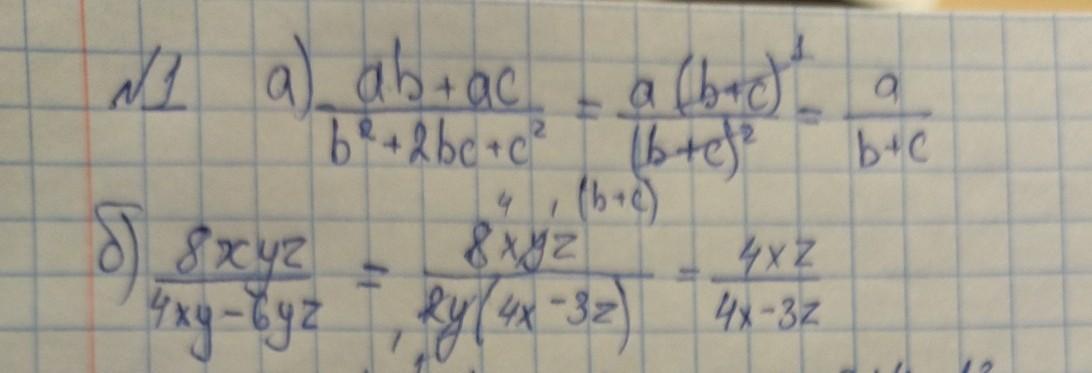 №1 а) (ab+ac)/(b²+2bc+c²) = a(b+c)¹/(b+c)² = a/(b+c)
4 1 (b+c)
б) 8xyz/(4xy-6yz) = 8xyz/(2y(4x-3z)) = 4xz/(4x-3z)